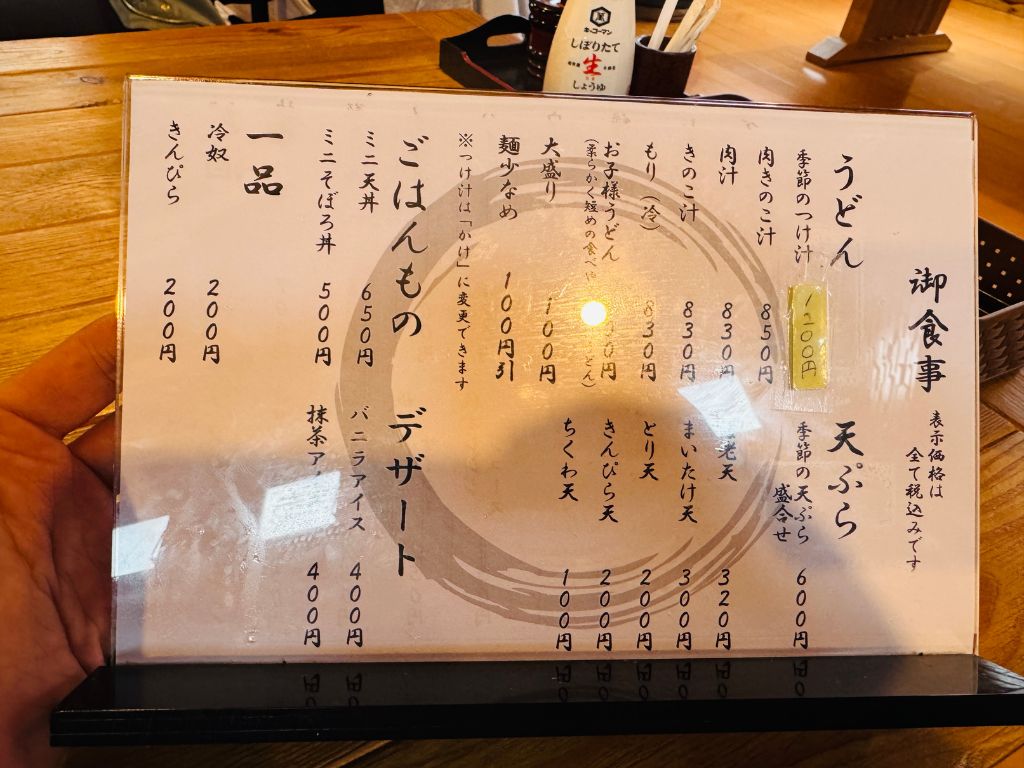 キッコーマン
しぼりたて
生
しょうゆ
御食事
表示価格は
全て税込みです
うどん
季節のつけ汁 1200円
肉きのこ汁 850円
肉汁 830円
きのこ汁 830円
もり(冷) 830円
お子様うどん 円
(柔らかく短めの食べや どん)
大盛り 100円
麺少なめ 100円引
※つけ汁は「かけ」に変更できます
天ぷら
季節の天ぷら
盛合せ 600円
老天 320円
まいたけ天 300円
とり天 200円
きんぴら天 200円
ちくわ天 100円
ごはんもの
ミニ天丼 650円
ミニそぼろ丼 500円
デザート
バニラアイス 400円
抹茶ア 400円
一品
冷奴 200円
きんぴら 200円